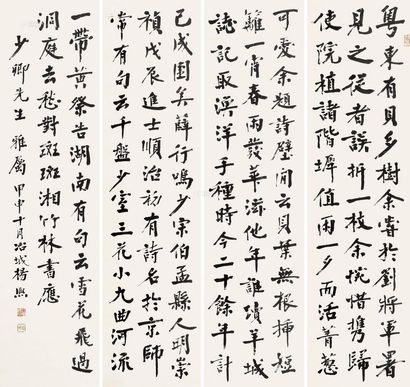 粤東有貝多樹余於劉將軍署
見之從者誤折一枝余惋惜攜歸
使院植諸階墀值雨一夕而活菁葱
可愛余題詩壁間云貝葉無根插短
籬一宵春雨發華滋他年誰續羊城
誌記取漁洋手種時今二十餘年計
已成圍矣薛行塢少宗伯孟縣人明崇
禎戊辰進士順治初有詩名於京師
常有句云千盤少室三花小九曲河流
一帶黃祭告湖南有句云雪花飛過
洞庭去愁對斑斑湘竹林書應
少卿先生雅屬 甲申十月冶城楊熙